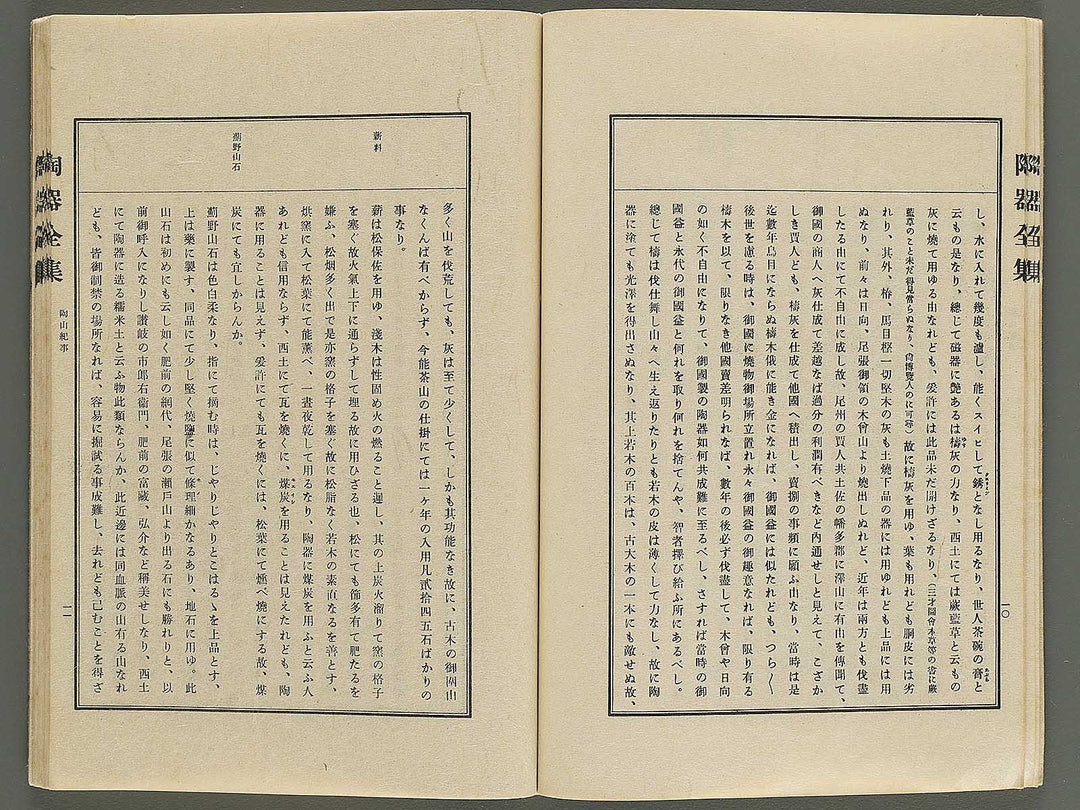 陶器全集
し、水に入れて幾度も濾し、能くスイヒとして銹となし用るなり、世人茶碗の膏と
云ものは是なり、總じて磁器に艶あるは檮灰の力なり、西土にては蕨藍草と云もの
灰に燒て用ゆる由なれども、爰許には此品未だ開けざるなり、(三才圖會本草等の書に蕨
藍草のこと未だ得見當らぬなり、尙博覽人のに可尋) 故に檮灰を用ゆ、葉も用れども胴皮には劣
れり、其外、椿、馬目樫一切堅木の灰も土燒下品の器には用ゆれども上品には用
ぬなり、前々は日向、尾張御領の木曾山より燒出しぬれど、近年は兩方とも伐盡
したる由にて不自由に成し故、尾州の賈人共土佐の幡多郡に澤山に有由を傳聞て、
御國の商人へ灰仕成て差越なば過分の利潤有べきなど內通せしと見えて、こざか
しき賈人ども、檮灰を仕成て他國へ積出し、賣捌の事類に願ふ由なり、當時は是
迄數年鳥目にならぬ檮木俄に能き金になれば、御國益には似たれども、つら〱
後世を慮る時は、御國に燒物御場所立置れ永々御國益の御趣意なれば、限り有る
檮木を以て、限りなき他國賣差明られなば、數年の後必ず伐盡して、木曾や日向
の如く不自由になりて、御國製の陶器如何共成難に至るべし、さすれば當時の御
國益と永代の御國益と何れを取り何れを捨てんや、智者擇び給ふ所にあるべし。
總じて檮は伐仕舞し山々へ生え返りたりとも若木の皮は薄くして力なし、故に陶
器に塗ても光澤を得出さぬなり、其上若木の百木は、古大木の一本にも敵せぬ故、
一〇
多く山を伐荒しても、灰は至て少くして、しかも其功能なき故に、古木の御圍山
なくんば有べからず、今能茶山の仕掛にては一ケ年の入用凡貳拾四五石ばかりの
事なり。
薪料
薪は松保佐を用ゆ、淺木は性固め火の燃ること遲し、其の上炭火溜りて窯の格子
を塞ぐ故火氣上下に通らずして埋る故に用ひざる也、松にても節多有て肥たるを
嫌ふ、松烟多く出で是亦窯の格子を塞ぐ故に松脂なく若木の素直なるを善とす、
烘窯に入て松葉にて能薰べ、一晝夜乾して用るなり、陶器に煤炭を用ふと云ふ人
あれども信用ならず、西土にて瓦を燒くに、煤炭を用ることは見えたれども、陶
器に用ることは見えず、爰許にても瓦を燒くには、松葉にて煙べ燒にする故、煤
炭にても宜しからんか。
薊野山石
薊野山石は色白柔なり、指にて摘む時は、じやりじやりとこはるゝを上品とす、
上は藥に製す、同品にて少し堅く燒鹽に似て條理細かなるあり、地石に用ゆ。此
山石は初めにも云し如く肥前の網代、尾張の瀨戶山より出る石にも勝れりと、以
前御呼入になりし讃岐の市郎右衞門、肥前の富藏、弘介など稱美せしなり、西土
にて陶器に造る糯米土と云ふ物此類ならんか、此近邊には同血脈の山有る山なれ
ども、皆御制禁の場所なれば、容易に掘試る事成難し、去れども己むことを得ざ
陶山紀事
一一
陶器全集